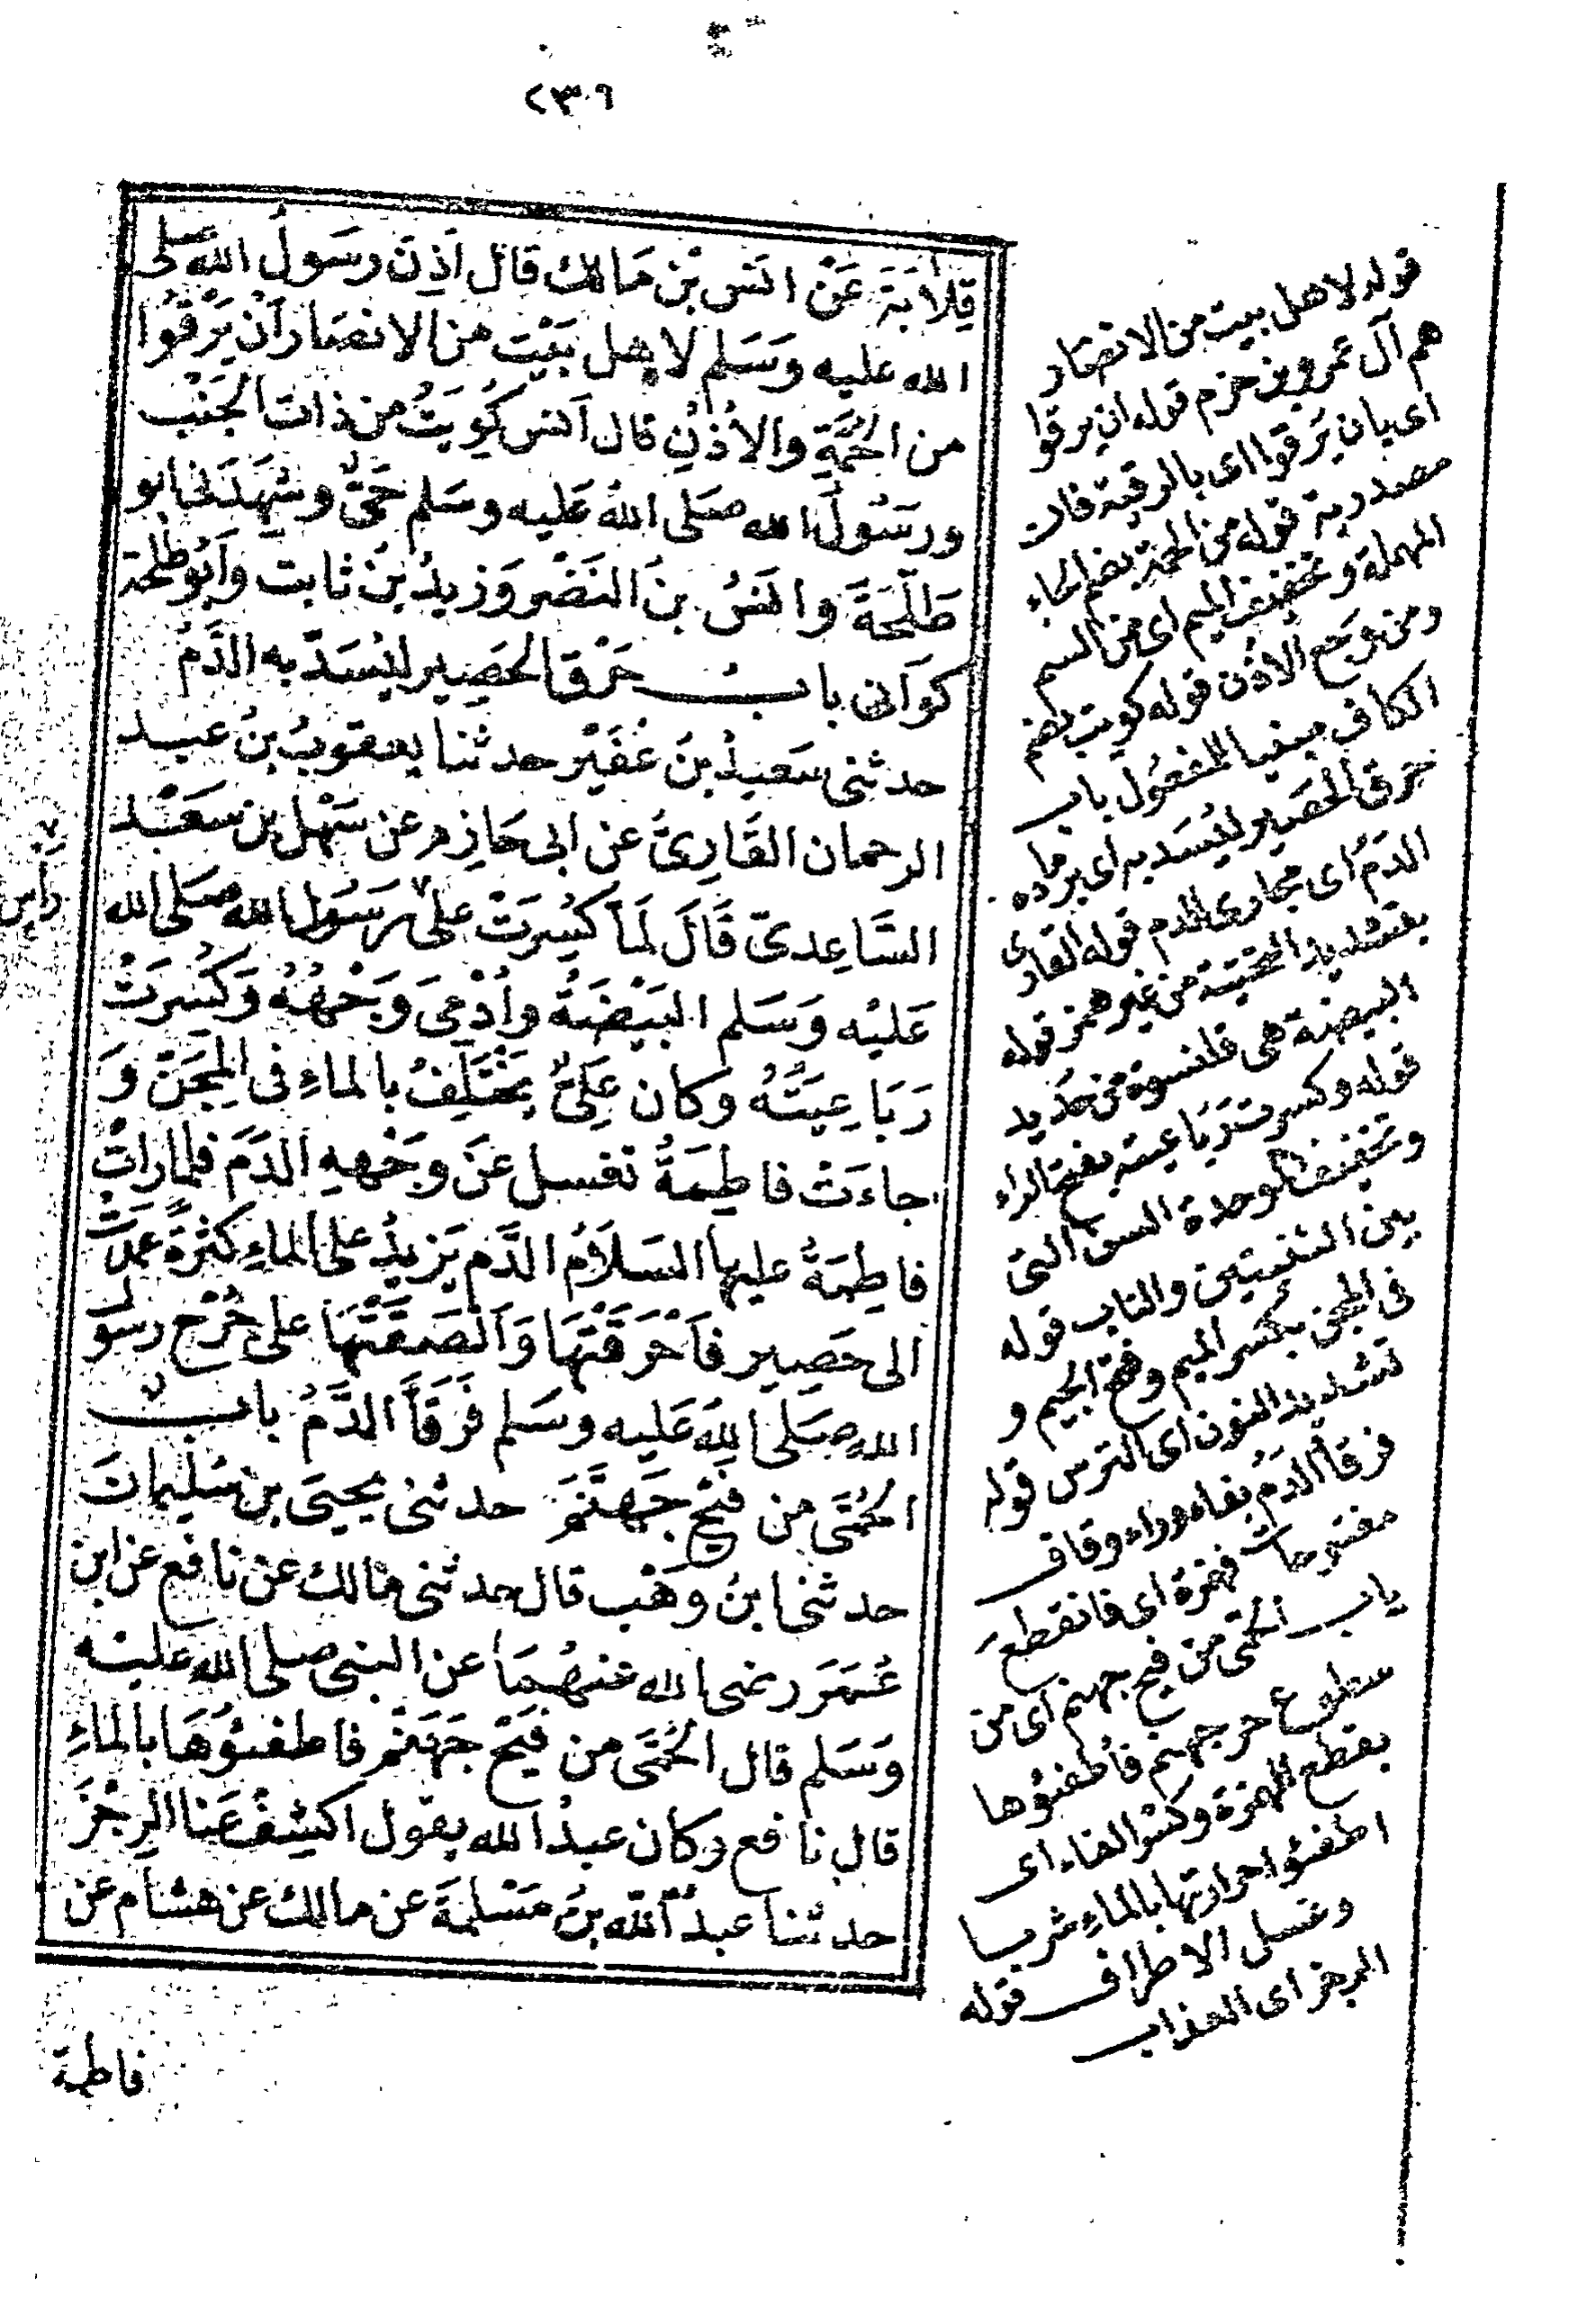 ٢٣٠٩
قِلَابَةَ عَنْ انَسِ بْنِ مَالِك قال اَذِنَ رسَولُ الله صَلى
الله عليه وَسَلم لاهل بَيْت من الانصَار اَنْ يَرْقُوا
من الحُمَةِ والاُذُنِ قال اَنس كُوِيتُ من ذات الجَنْب
ورسُولُ الله صَلى اللهُ عَليه وسَلم حَىٌّ وشَهِدَنى ابو
طَلْحَةَ وانَسُ بنُ النَضْر وَزيدُ بنُ ثابت وَاَبُو طَلحة
كوَانى باب حَرْق الحَصِير ليُسَدّ به الدَّمُ
حدثنى سَعيدُ بنُ عُفَيْر حدثنا يعقوبُ بنُ عبد
الرحمان القَارِىُّ عن ابى حَازِم عن سَهْل بن سَعْد
السَّاعِدىّ قَالَ لمَا كُسِرَتْ على رَسُول الله صَلى الله
عَليْه وَسَلم البَيْضَةُ واُدْمِىَ وَجْهُهُ وَكُسِرَتْ
رَبَاعِيَتُهُ وكان عَلِىٌّ يَخْتَلِفُ بالماءِ فى المِجَنّ وَ
جاءَتْ فاطِمَةُ تغسل عَنْ وَجْههِ الدَمَ فلما راَتْ
فاطِمَةُ عليها السَلَامُ الدَّم يَزيدُ على الماءِ كثرَةً عَمَدَتْ
الى حَصِير فاَحْرَقَتْهَا وَاَلْصَقَتْهَا على جُرْح رسول
الله صَلى اللهُ عَليه وسَلم فَرَقَأَ الدَّمُ باب
الحُمَّى من فَيْح جَهَنَّمَ حدثنى يحيَى بن سُليمان
حدثنى ابنُ وَهْب قال حدثنى مالك عن نافع عن ابن
عُمَرَ رضى الله عنهُمَا عن النبى صلى الله عليْه
وَسَلم قال الحُمَّى من فَيْح جَهَنَّم فاطفئوُهَا بالماءِ
قال نافع وكان عبدُ الله يقول اكشِفْ عَنا الرِجْزَ
حدثنا عبدُ الله بنُ مَسْلمَةَ عن مالك عن هشام عن
فاطمة
قوله لاهل بيت من الانصَار
هم آل عَمرو بن حزم قوله ان يرقوا
اى بان يَرقوا اى بالرقية فان
مصدرية قوله من الحمة بضم الحاء
المهملة وتخفيف الميم اى من السم
ومن وجع الاذن قوله كويت بضم
الكاف مبنيا للمفعُول باب
حَرق الحصَير ليُسَد به اى برمَاده
الدَمُ اى مجارى الدم قوله القارى
بتشديد التحتية من غير همز قوله
البيضة هى قلنسوة من حَديد
قوله وكسرت رَبَاعيته بفتح الراء
وتخفيف الموحدة السن التى
بين الثنيتين والناب قوله
فى المجن بكسر الميم وفتح الجيم و
تشديد النون اى الترس قوله
فرقأ الدَمُ بفاء وراء وقاف
مفتوحات فهمزة اى فانقطع
باب الحمى من فيح جهنم اى من
سطوع حر جهنم فاطفئوها
بقطع الهمزة وكسر الفاء اى
اطفئوا حرارتها بالماءِ شربا
وغسل الاطراف قوله
الرجز اى العذاب
راس